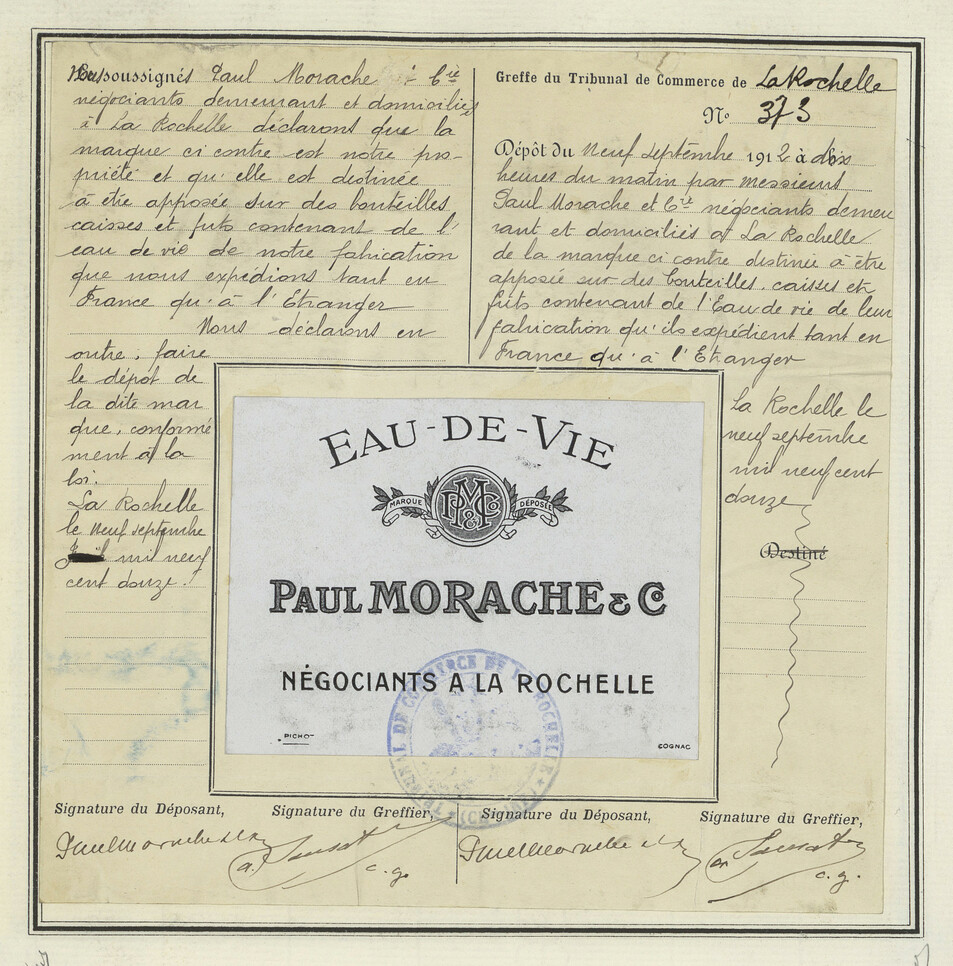 Nous soussignés Paul Morache & Cie
négociants demeurant et domiciliés
à La Rochelle déclarons que la
marque ci contre est notre pro-
priété et qu'elle est destinée
à être apposée sur des bouteilles
caisses et futs contenant de l'
eau de vie de notre fabrication
que nous expédions tant en
France qu'à l'Etranger
Nous déclarons en
outre, faire
le dépot de
la dite mar
que, conformé
ment à la
loi.
La Rochelle
le neuf septembre
mil neuf
cent douze.
Greffe du Tribunal de Commerce de La Rochelle
No 373
Dépôt du Neuf septembre 1912 à dix
heures du matin par Messieurs
Paul Morache et Cie négociants demeu
rant et domiciliés à La Rochelle
de la marque ci contre destinée à être
apposée sur des bouteilles, caisses et
futs contenant de l'Eau de vie de leur
fabrication qu'ils expédient tant en
France qu'à l'Etranger
La Rochelle le
neuf septembre
mil neuf cent
douze
Destiné
EAU-DE-VIE
MARQUE DÉPOSÉE
PM&Co
PAUL MORACHE & Co
NÉGOCIANTS A LA ROCHELLE
PICHOT
COGNAC
TRIBUNAL DE COMMERCE DE LA ROCHELLE
Signature du Déposant, Signature du Greffier, Signature du Déposant, Signature du Greffier,
Paul Morache & Cie c.g. Paul Morache & Cie c.g.